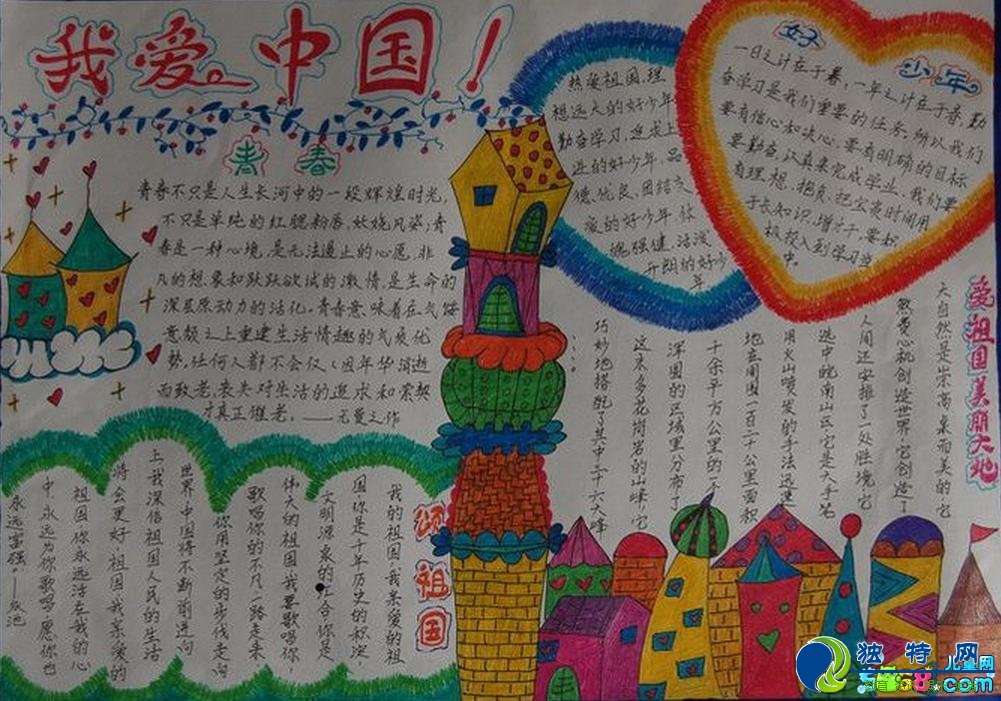 我爱中国！
青春
青春不只是人生长河中的一段辉煌时光，
不只是单纯的红腮粉唇，妖娆风姿；青
春是一种心境，是无法遏止的心愿，非
凡的想象和跃跃欲试的激情，是生命的
深层原动力的活化。青春意味着在气馁
意颓之上重建生活情趣的气质优
势，任何人都不会仅仅因年华消逝
而致老，丧失对生活的追求和索契
才真正催老。——无曼之作
热爱祖国，理
想远大的好少年
勤奋学习，追求上
进的好少年，品
德优良，团结友
爱的好少年，体
魄强健，活泼
开朗的好少
年
好
少年
一日之计在于晨，一年之计在于春，勤
奋学习是我们重要的任务，所以我们
要有信心和决心，要有明确的目标
要勤奋，认真来完成学业，我们要
有理想，抱负，把宝贵时间用
于长知识，增才干，要积
极投入到学习当
中。
爱祖国美丽大地
大自然是崇高卓而美的，它
煞费心机创造世界，它创造了
人间还安排了一处胜境，它
选中皖南山区，它是大手笔
用火山喷发的手法迅速
地在周围一百二十公里面积
千余平方公里的
浑圆的区域里分布了
这末多花岗岩的山峰，它
巧妙地搭配了其中三十六大峰
……
颂祖国
我的祖国，我亲爱的祖
国你是千年历史的积淀，
文明源泉的汇合你是
伟大的祖国我要歌唱你，
歌唱你的不凡一路走来
你用坚定的步伐走向
世界，中国将不断前进向
上我深信祖国人民的生活
将会更好，祖国，我亲爱的
祖国，你永远活在我的心
中，永远为你歌唱，愿你也
永远富强。——永池
独特网
儿童网